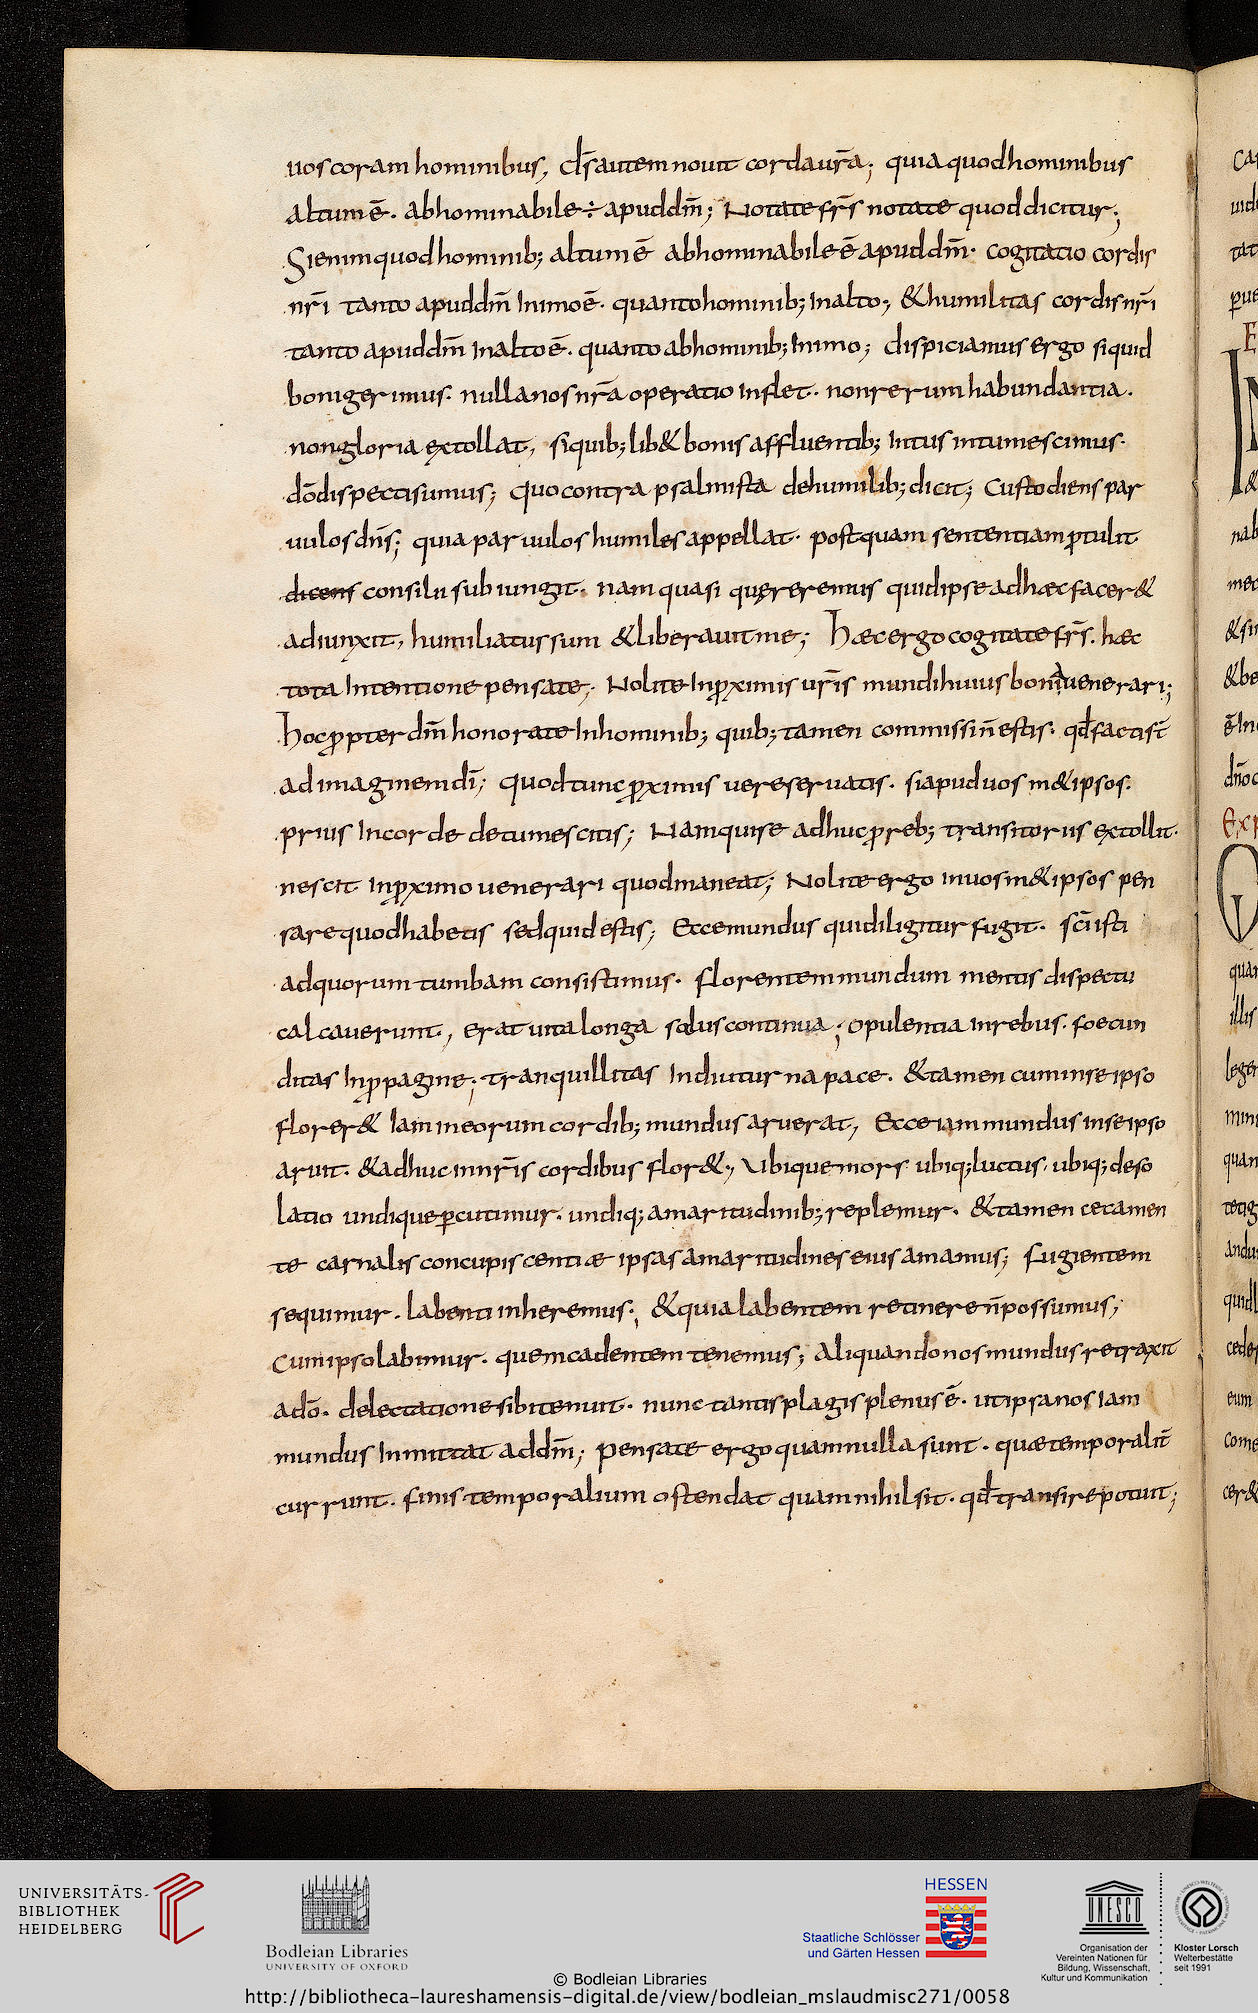 uos coram hominibus, d̄s autem nouit corda ur̄a; quia quod hominibus
altum ē. abhominabile ÷ apud dm̄; Notate fr̄s notate quod dicitur;
Si enim quod hominib; altum ē abhominabile ē apud dm̄. cogitatio cordis
nr̄i tanto apud dm̄ In imo ē. quanto hominib; In alto; & humilitas cordis nr̄i
tanto apud dm̄ In alto ē. quanto ab hominib; In imo; dispiciamus ergo si quid
boni gerimus. nulla nos nr̄a operatio inflet. non rerum habundantia.
non gloria extollat, si quib; lib& bonis affluentib; Intus intumescimus.
dō dispecti sumus; Quo contra psalmista de humilib; dicit; Custodiens par
uulos dn̄s; quia paruulos humiles appellat. postquam sententiam ꝓtulit
dicens consilii subiungit. nam quasi quęreremus quid ipse ad hæc facer&
adiunxit, humiliatus sum & liberauit me; Hæc ergo cogitate fr̄s. hæc
tota Intentione pensate; Nolite In ꝓximis ur̄is mundi huius bona uenerari;
Hoc ꝓpter dm̄ honorate In hominib; quib; tamen commissi n̄ estis. qđ facti st̄
ad imaginem dī; Quod tunc ꝓximis uere seruatis. si apud uos m&ipsos.
prius In corde detumescitis; Nam qui se adhuc ꝓ reb; transitoriis extollit.
nescit In ꝓximo uenerari quod maneat; Nolite ergo in uosm&ipsos pen
sare quod habetis sed quid estis; Ecce mundus qui diligitur fugit. sc̄i isti
ad quorum tumbam consistimus. florentem mundum mentis dispectu
calcauerunt, erat uita longa salus continua; opulentia in rebus. foecun
ditas In ꝓpagine; tranquillitas In diuturna pace. & tamen cum in se ipso
florer& Iam in eorum cordib; mundus aruerat, Ecce iam mundus in se ipso
aruit. & adhuc in nr̄is cordibus flor&; Ubique mors ubiq; luctus. ubiq; deso
latio undique ꝑcutimur. undiq; amaritudinib; replemur. & tamen ceca men
te carnalis concupiscentiæ ipsas amaritudines eius amamus; Fugientem
sequimur. labenti inheremus; & quia labentem retinere n̄ possumus;
Cum ipso labimur. quem cadentem tenemus; Aliquando nos mundus retraxit
a dō. delectatione sibi tenuit. nunc tantis plagis plenus ē. ut ipsa nos Iam
mundus Inmittat ad dm̄; Pensate ergo quam nulla sunt. quæ temporalit̄
currunt. finis temporalium ostendat quam nihil sit. qđ transire potuit;
UNIVERSITÄTS-
BIBLIOTHEK
HEIDELBERG
Bodleian Libraries
UNIVERSITY OF OXFORD
HESSEN
Staatliche Schlösser
und Gärten Hessen
UNESCO
Organisation der
Vereinten Nationen für
Bildung, Wissenschaft,
Kultur und Kommunikation
Kloster Lorsch
Welterbestätte
seit 1991
© Bodleian Libraries
http://bibliotheca-laureshamensis-digital.de/view/bodleian_mslaudmisc271/0058